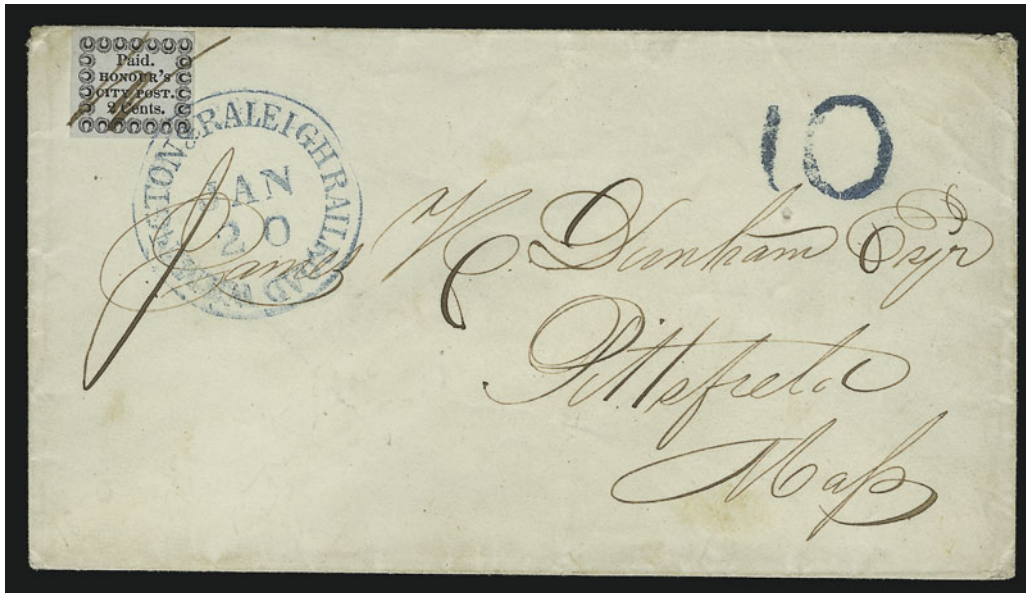 Paid.
HONOUR'S
CITY POST.
2 Cents.
WILMINGTON & RALEIGH RAILROAD
JAN
20
10
James H. Dunham Esqr
Pittsfield
Mass